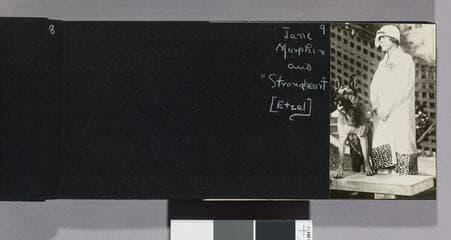 8
9
Jane
Murphin
and
"Strongheart"
[Etzel]